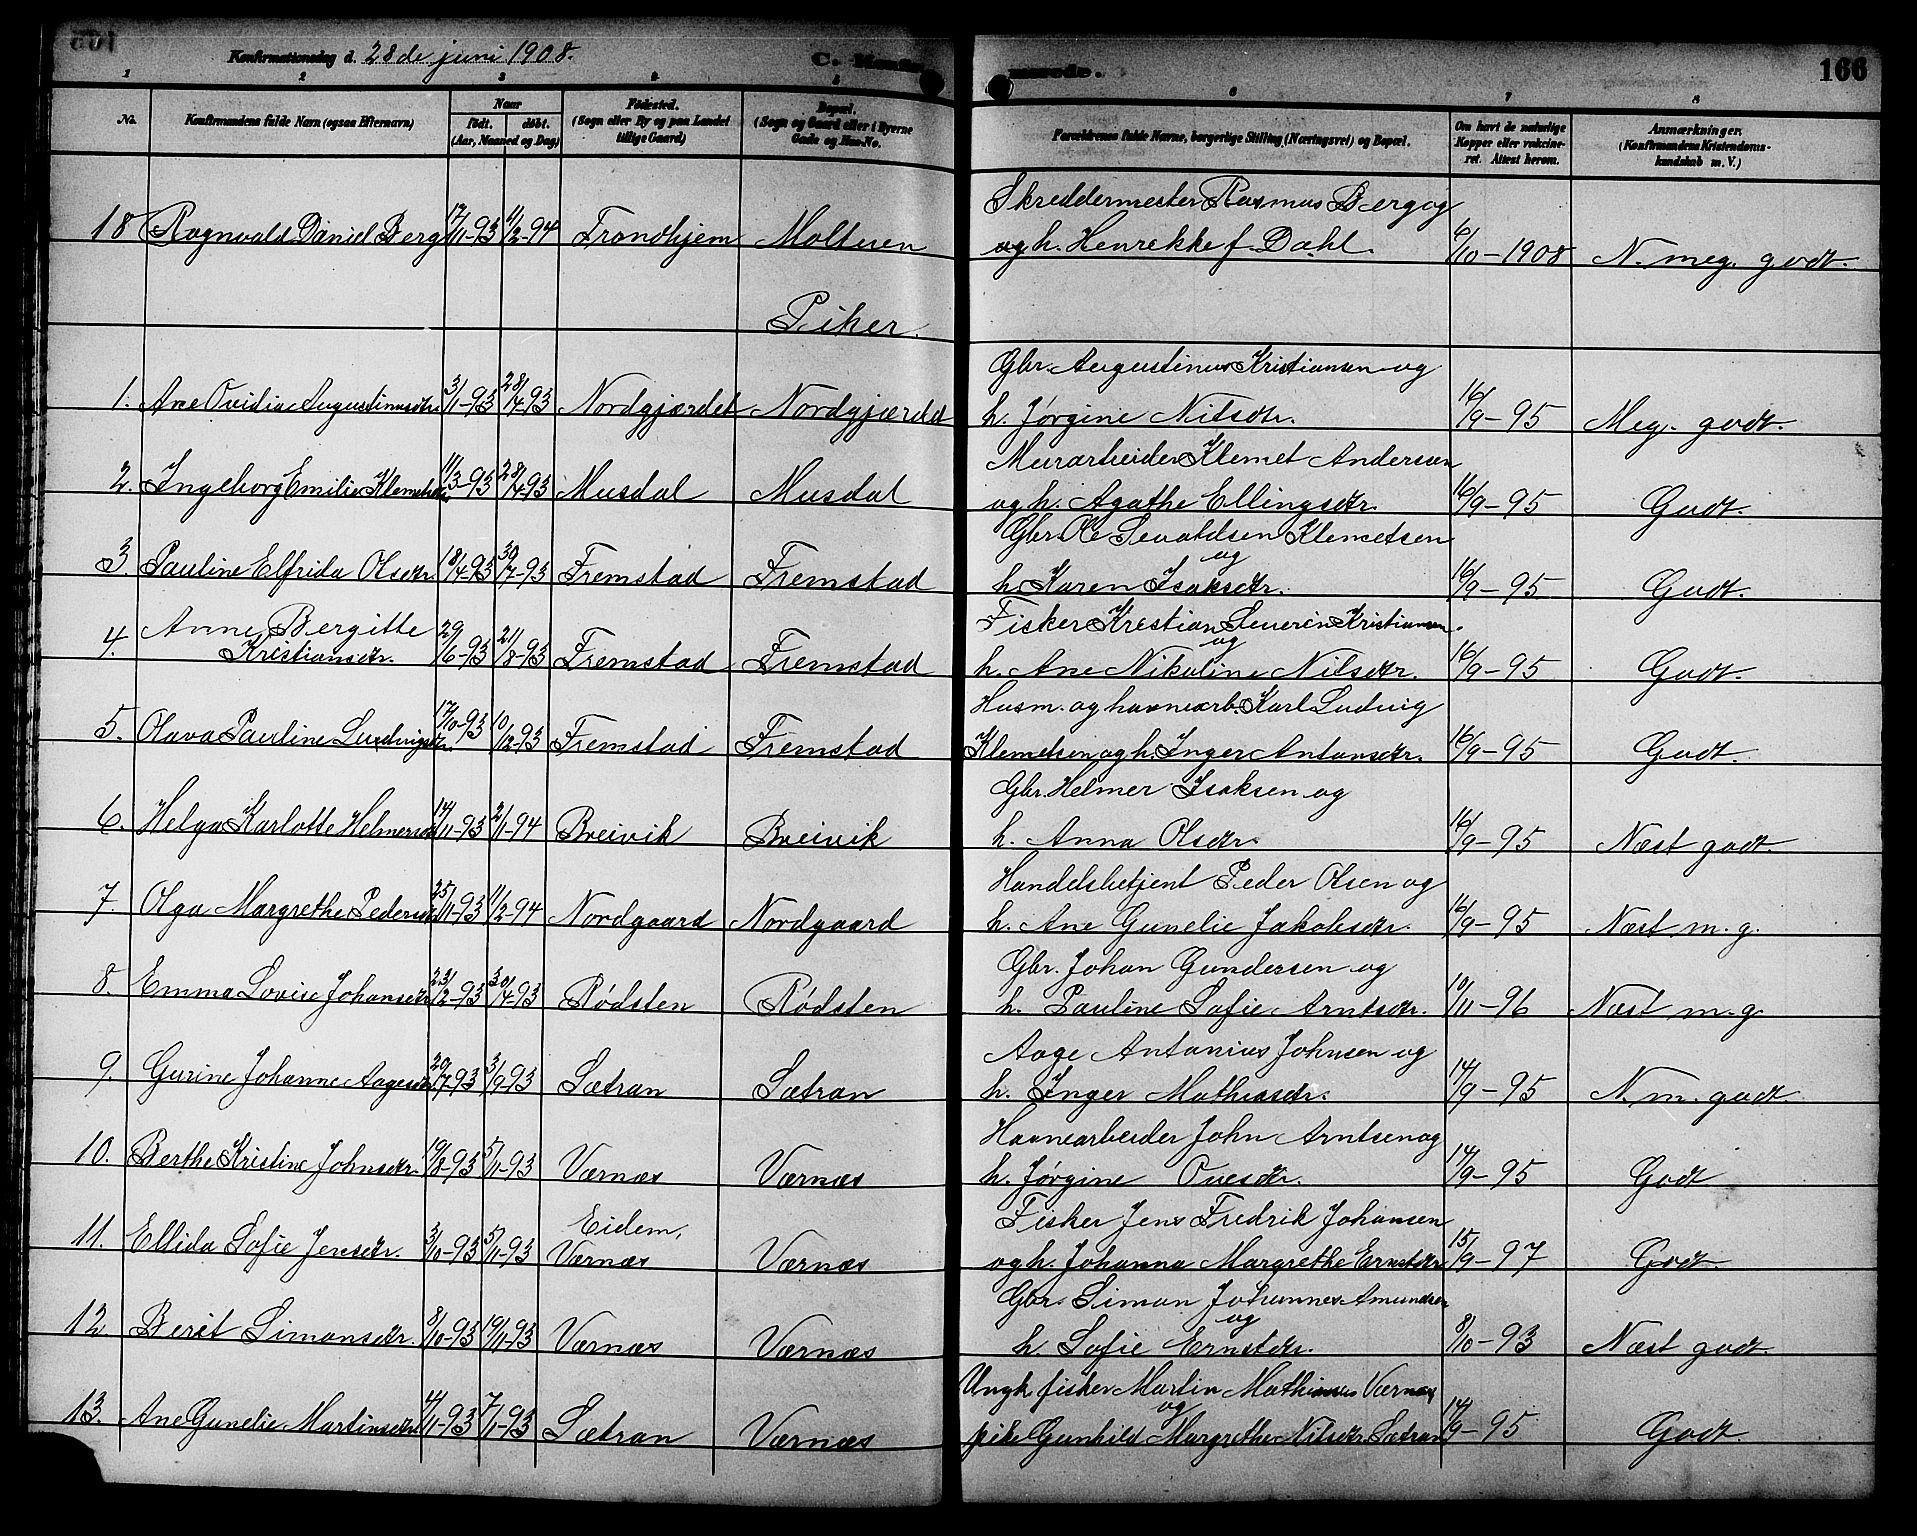 Konfirmationsdag d. 28de juni 1908.
C. Konfir
merede.
166
1 2 3 4 5 6 7 8
No.
Konfirmandens fulde Navn (ogsaa Efternavn)
Naar
født. døbt.
(Aar, Maaned og Dag)
Fødested.
(Sogn eller By og paa Landet
tillige Gaard)
Bopæl.
(Sogn og Gaard eller i Byerne
Gade og Hus-No.
Forældrenes fulde Navne, borgerlige Stilling (Næringsvei) og Bopæl.
Om havt de naturlige
Kopper eller vakcine-
ret. Attest herom.
Anmærkninger.
(Konfirmandens Kristendoms-
kundskab m. V.)
Skreddermester Rasmus Berg og
18 Ragnvald Daniel Berg 17/11-93 11/2-94 Trondhjem Moltuen og h. Henrekke f. Dahl. 6/10-1908 N. meg. godt.
Piker.
Gbr. Augustinus Kristiansen og
1. Ane Ovidia Augustinusdtr. 3/1-93 28/4-93 Nordgjærdet Nordgjærdet h. Jørgine Nilsdtr. 16/9-95 Meg. godt.
Murarbeider Klemet Andersen
2. Ingeborg Emilie Klemetsdtr. 11/3-93 28/4-93 Musdal Musdal og h. Agathe Ellingsdtr. 16/9-95 Godt.
Gbr. Ole Sevaldsen Klemetsen
og
3. Pauline Elfrida Olsdtr. 18/4-93 30/7-93 Fremstad Fremstad h. Karen Isaksdtr. 16/9-95 Godt.
Fisker Kristian Severin Kristiansen
og
4. Anne Bergitte
Kristiansdtr. 29/6-93 21/8-93 Fremstad Fremstad h. Ane Nikoline Nilsdtr. 16/9-95 Godt.
Husm. og havnearb. Karl Ludvig
5. Olava Pauline Ludvigsdtr. 17/10-93 10/12-93 Fremstad Fremstad Klemetsen og h. Inger Antonsdtr. 16/9-95 Godt
Gbr. Helmer Isaksen og
6. Helga Karlotte Helmersdtr 14/11-93 2/1-94 Breivik Breivik h. Anna Olsdtr. 16/9-95 Næst godt.
Handelsbetjent Peder Olsen og
7. Olga Margrethe Pedersdtr 25/11-93 11/2-94 Nordgaard Nordgaard h. Ane Gunelie Jakobsdtr. 16/9-95 Næst m. g.
Gbr. Johan Gundersen og
8. Emma Lovise Johansdtr 23/2-93 30/4-93 Rødsten Rødsten h. Pauline Sofie Arntsdtr. 10/11-96 Næst m. g.
Aage Antonius Johnsen og
9. Gurine Johanne Aagesdtr 20/7-93 3/9-93 Sætran Sætran h. Inger Mathiasdtr. 14/9-95 N. m. godt.
Havnearbeider John Arntsen og
10. Berthe Kristine Johnsdtr. 19/8-93 5/11-93 Værnæs Værnæs h. Jørgine Ovesdtr. 14/9-95 Godt
Fisker Jens Fredrik Johansen
11. Ellida Sofie Jensdtr. 3/10-93 5/11-93 Eidem,
Værnæs Værnæs og h. Johanna Margrethe Ernstdtr 15/9-97 Godt.
Gbr. Simon Johannes Amundsen
og
12 Berit Simonsdtr. 8/10-93 19/11-93 Værnæs Værnæs h. Sofie Ernstdtr. 8/10-93 Næst godt.
Ungk. fisker Martin Mathiasen Værnæs
og
13. Ane Gunelie Martinsdtr 4/11-93 7/1-93 Sætran Værnæs pike Gunhild Margrethe Nilsdtr. Sætran 14/9-95 Godt.